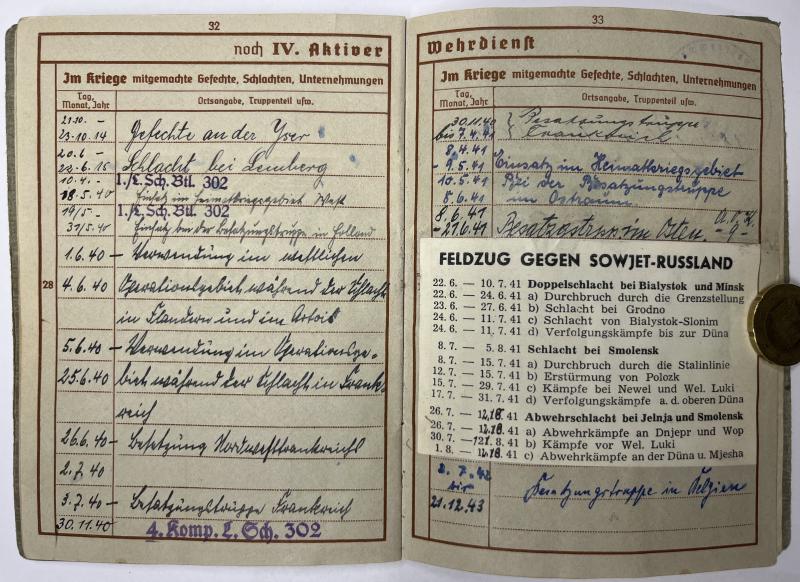 32
noch IV. Aktiver
Im Kriege mitgemachte Gefechte, Schlachten, Unternehmungen
Tag, Monat, Jahr
Ortsangabe, Truppenteil usw.
21.10. –
23.10.14 Gefechte an der Yser
20.6 –
22.6.15 Schlacht bei Lemberg
10.4. – I./L. Sch. Btl. 302
18.5.40 Einsatz im Heimatkriegsgebiet West
19/5 – I./L. Sch. Btl. 302
31/5.40 Einsatz bei der Besatzungstruppe in Holland
1.6.40 – Verwendung im westlichen
28
4.6.40 Operationsgebiet während der Schlacht
in Flandern und im Artois
5.6.40 – Verwendung im Operationsge-
25.6.40 biet während der Schlacht in Frank-
reich
26.6.40 – Besetzung Nordwestfrankreichs
2.7.40
3.7.40 – Besatzungstruppe Frankreich
30.11.40
4. Komp. L. Sch. 302
33
Wehrdienst
Im Kriege mitgemachte Gefechte, Schlachten, Unternehmungen
Tag, Monat, Jahr
Ortsangabe, Truppenteil usw.
30.11.40 Besatzungstruppe
bis 7.4.41 Frankreich
8.4.41
– 9.5.41 Einsatz im Heimatkriegsgebiet
10.5.41 Bei der Besatzungstruppe
8.6.41 im Ostraum
8.6.41
– 21.6.41 Besatzgstrup. im Osten.
FELDZUG GEGEN SOWJET-RUSSLAND
22. 6. — 10. 7. 41 Doppelschlacht bei Bialystok und Minsk
22. 6. — 24. 6. 41 a) Durchbruch durch die Grenzstellung
23. 6. — 27. 6. 41 b) Schlacht bei Grodno
24. 6. — 11. 7. 41 c) Schlacht von Bialystok-Slonim
24. 6. — 11. 7. 41 d) Verfolgungskämpfe bis zur Düna
8. 7. — 5. 8. 41 Schlacht bei Smolensk
8. 7. — 15. 7. 41 a) Durchbruch durch die Stalinlinie
12. 7. — 15. 7. 41 b) Erstürmung von Polozk
15. 7. — 29. 7. 41 c) Kämpfe bei Newel und Wel. Luki
17. 7. — 31. 7. 41 d) Verfolgungskämpfe a. d. oberen Düna
26. 7. — 41 Abwehrschlacht bei Jelnja und Smolensk
26. 7. — 41 a) Abwehrkämpfe an Dnjepr und Wop
30. 7. — 8. 41 b) Kämpfe vor Wel. Luki
1. 8. — 41 c) Abwehrkämpfe an der Düna u. Mjesha
2. 7. 42
bis Besatzungstruppe in Belgien
21.12.43